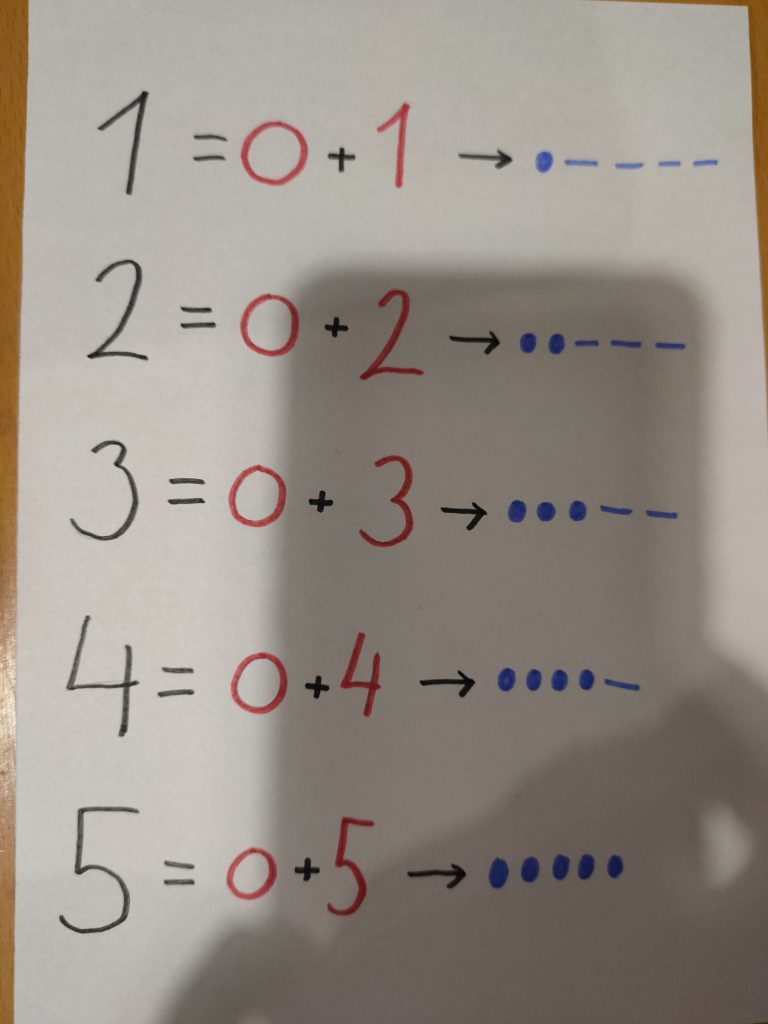 1 = 0 + 1 → • – – – –
2 = 0 + 2 → • • – – –
3 = 0 + 3 → • • • – –
4 = 0 + 4 → • • • • –
5 = 0 + 5 → • • • • •